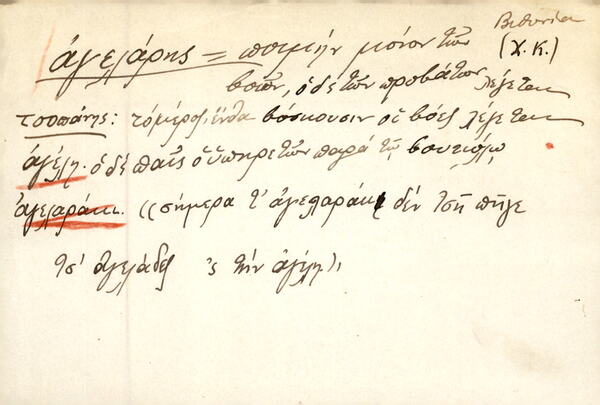 Βιθυνία
ἀγελάρης = ποιμὴν μόνον τῶν (Χ.Κ.)
βοῶν, ὁ δὲ τῶν προβάτων λέγεται
τσοπάνης: τὸ μέρος, ἔνθα βόσκουσιν οἱ βόες λέγεται
ἀγέλη. ὁ δὲ παῖς ὁ ὑπηρετῶν παρὰ τῷ
ἀγελαράκι. «σήμερα τ' ἀγελαράκι δὲν τσῆ πῆγε
τσ' ἀγελάδες 'ς τὴν ἀγέλη»